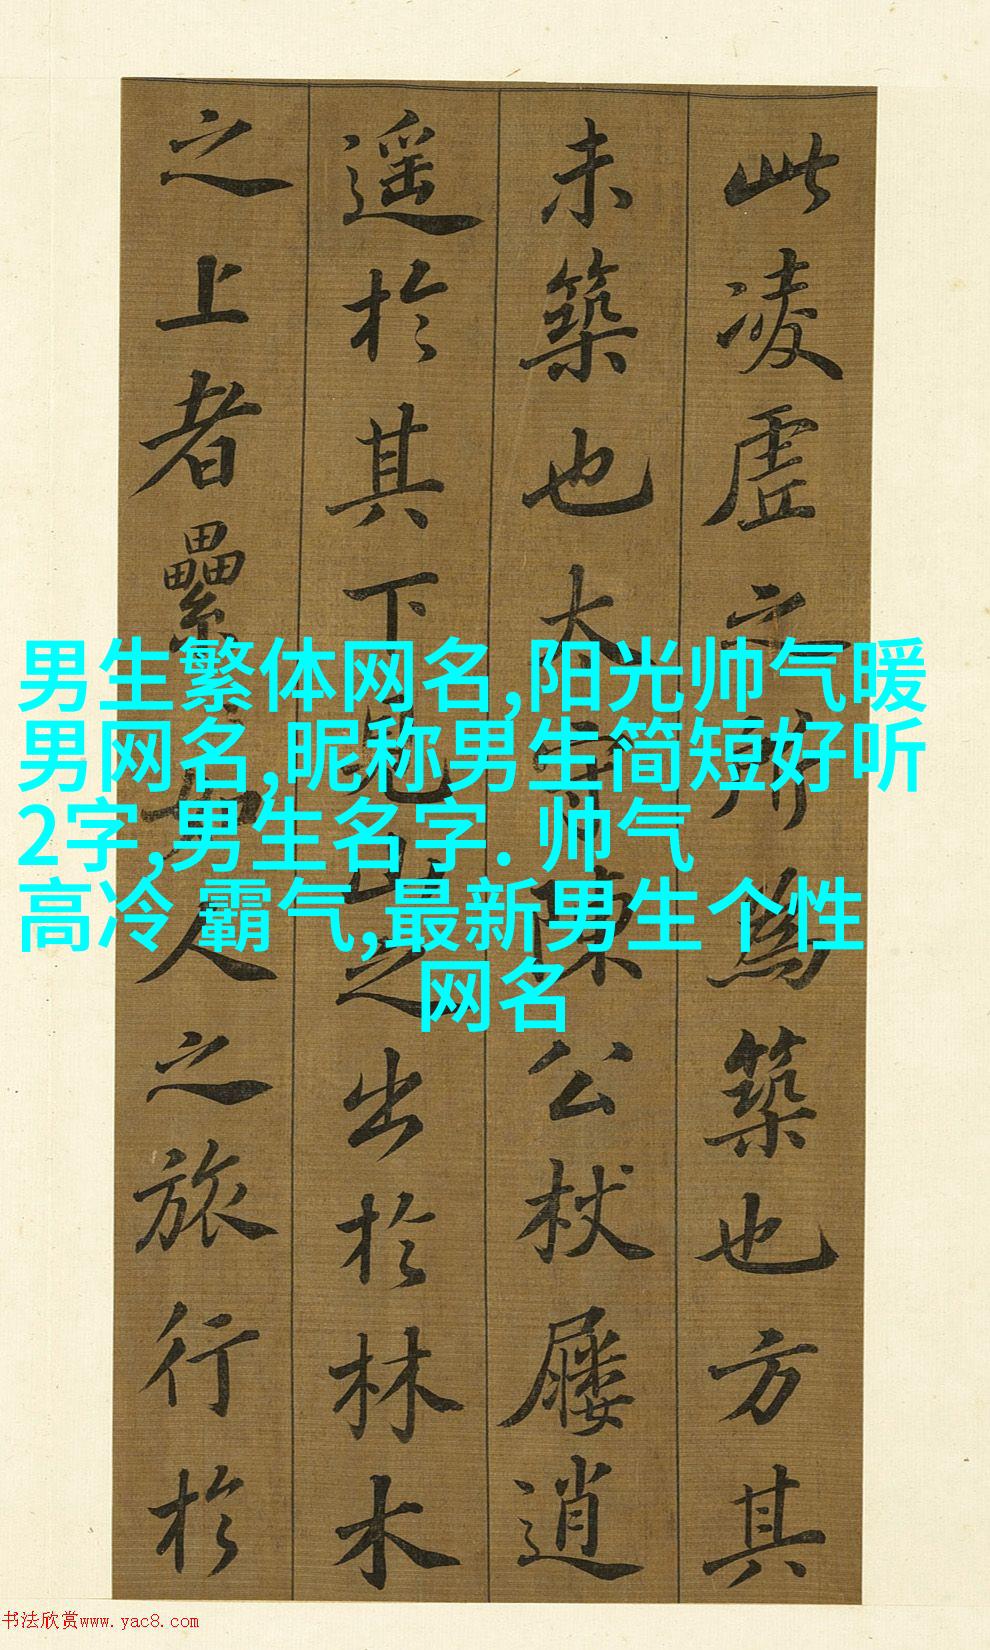 此凌虛之所為築也方其
未築也大守陳公杖屨逍
遥於其下見山之出於林木
之上者纍如人之旅行於
男生繁体网名,阳光帅气暖
男网名,昵称男生简短好听
2字,男生名字. 帅气
高冷 霸气,最新男生个性
网名
书法欣赏www.yac8.com